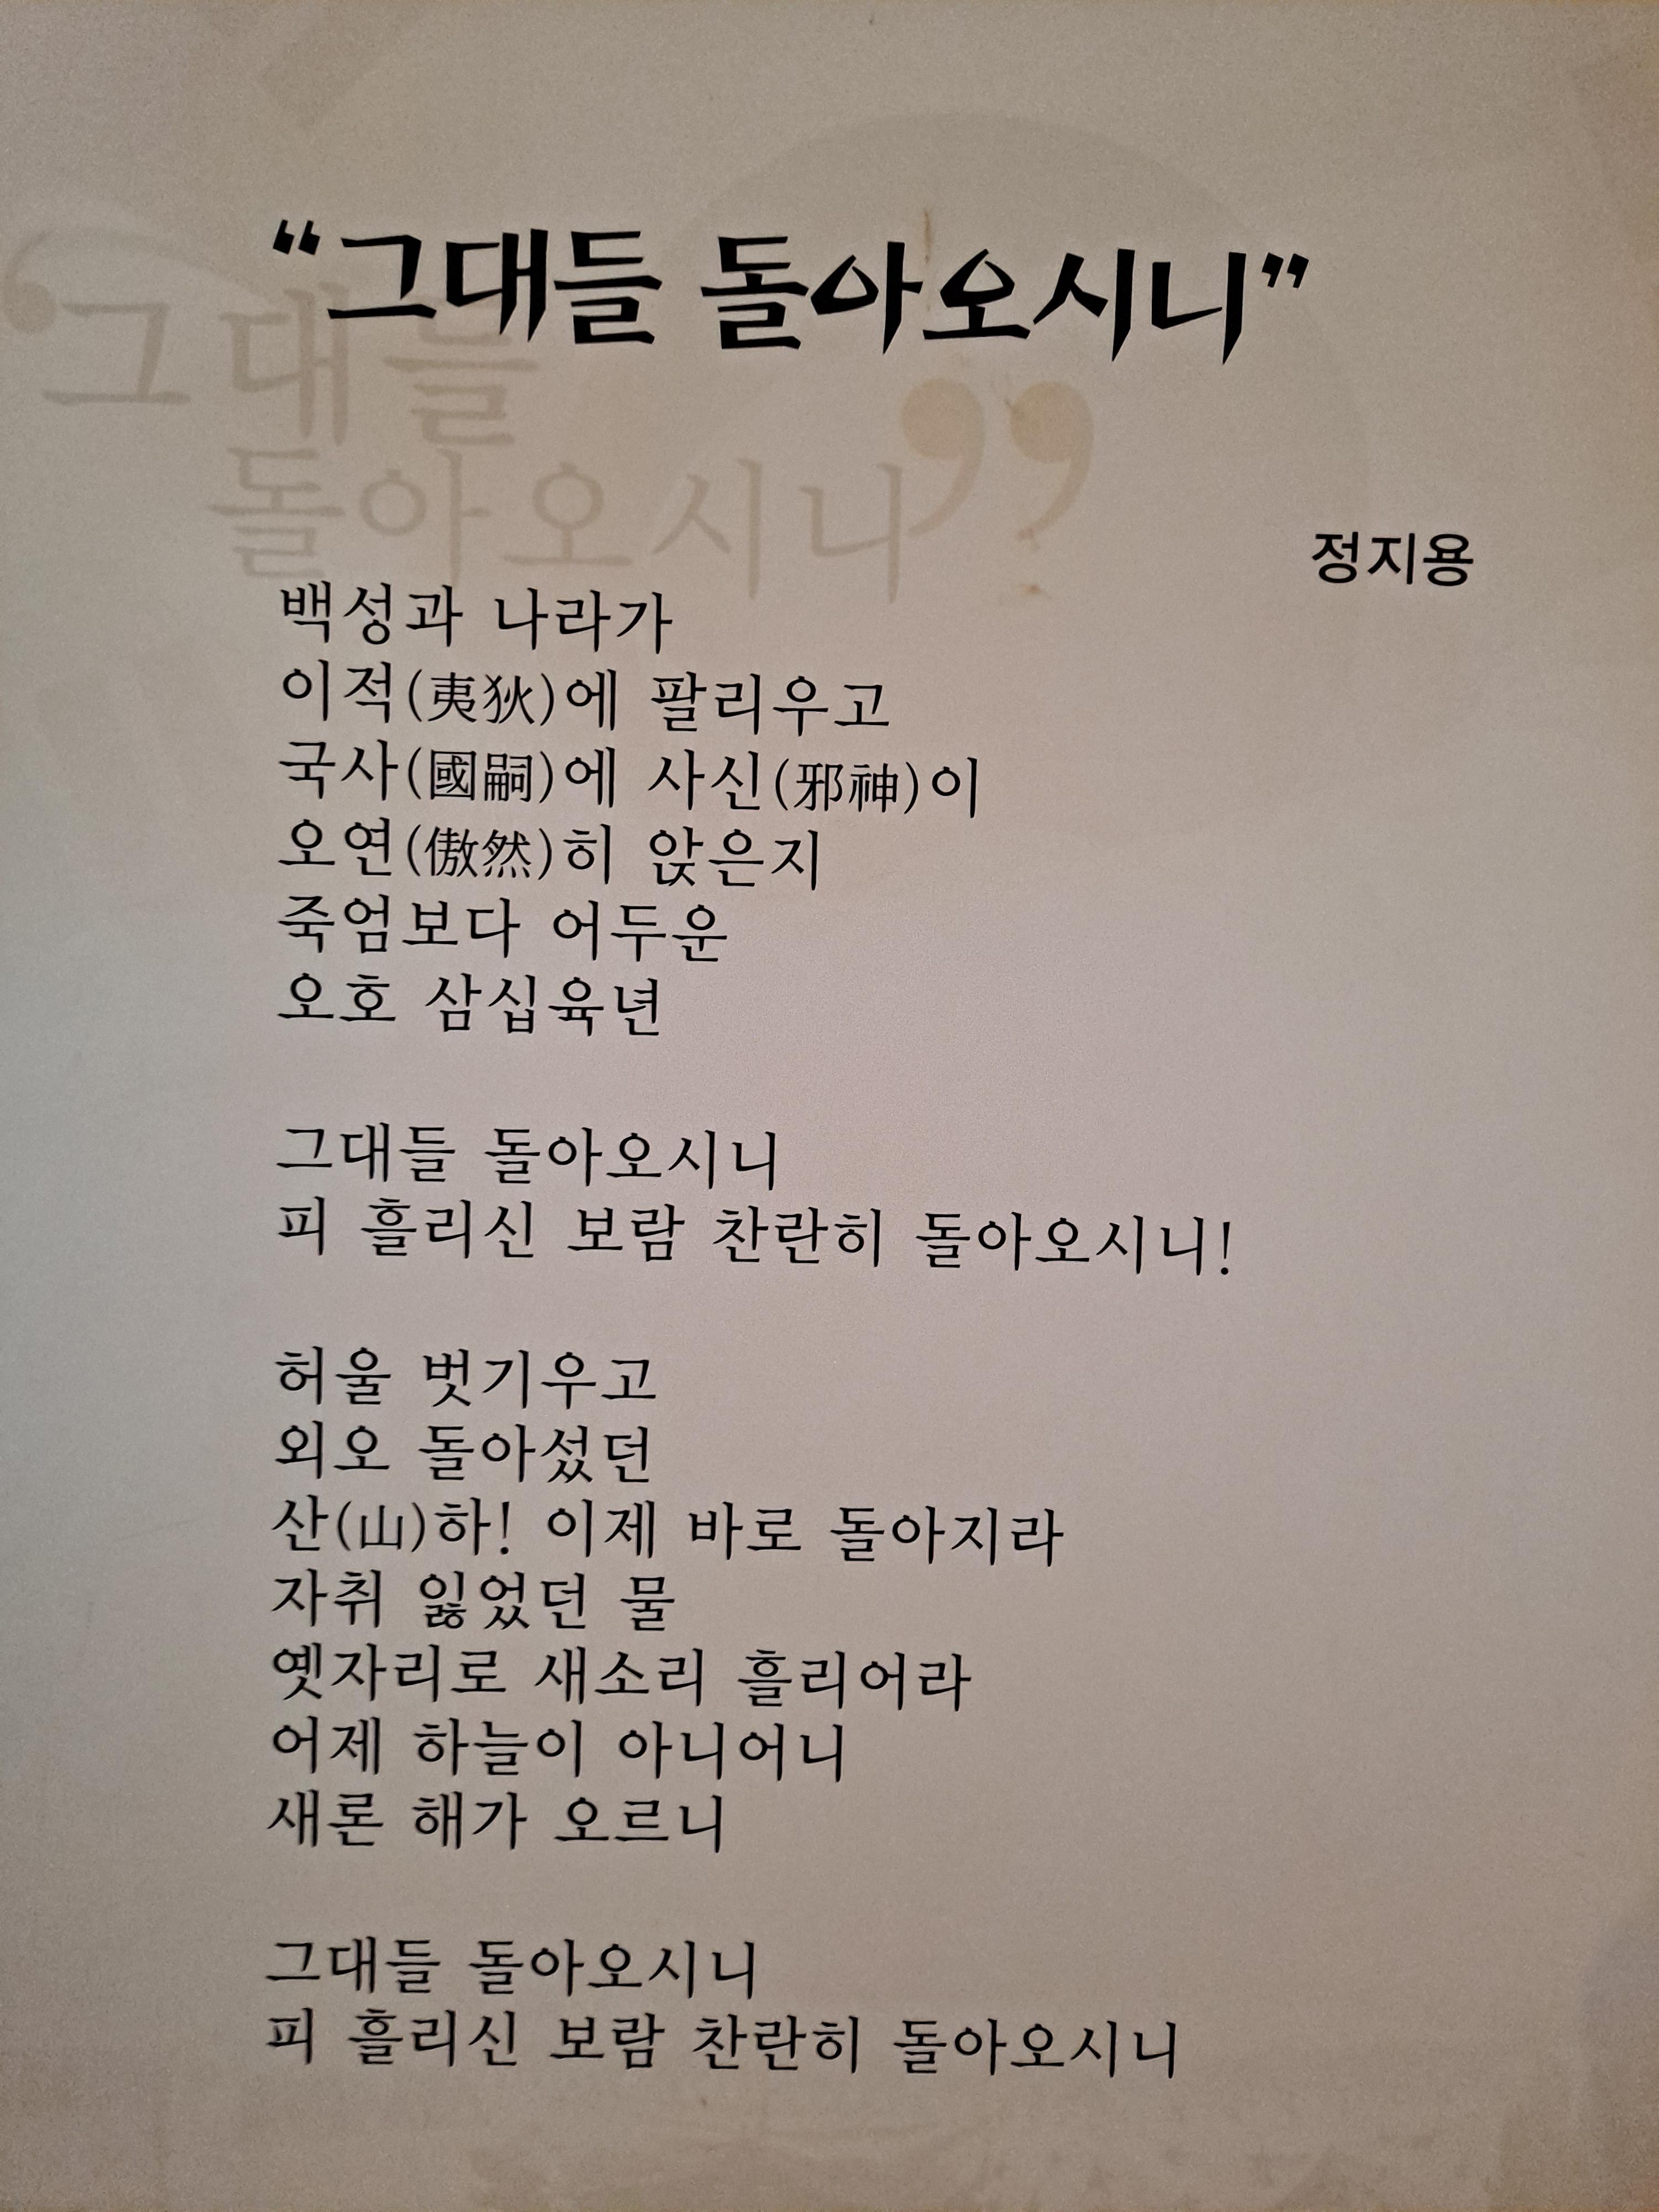 “그대들 돌아오시니”
“그대들
돌아오시니”
정지용
백성과 나라가
이적(夷狄)에 팔리우고
국사(國嗣)에 사신(邪神)이
오연(傲然)히 앉은지
죽엄보다 어두운
오호 삼십육년
그대들 돌아오시니
피 흘리신 보람 찬란히 돌아오시니!
허울 벗기우고
외오 돌아섰던
산(山)하! 이제 바로 돌아지라
자취 잃었던 물
옛자리로 새소리 흘리어라
어제 하늘이 아니어니
새론 해가 오르니
그대들 돌아오시니
피 흘리신 보람 찬란히 돌아오시니